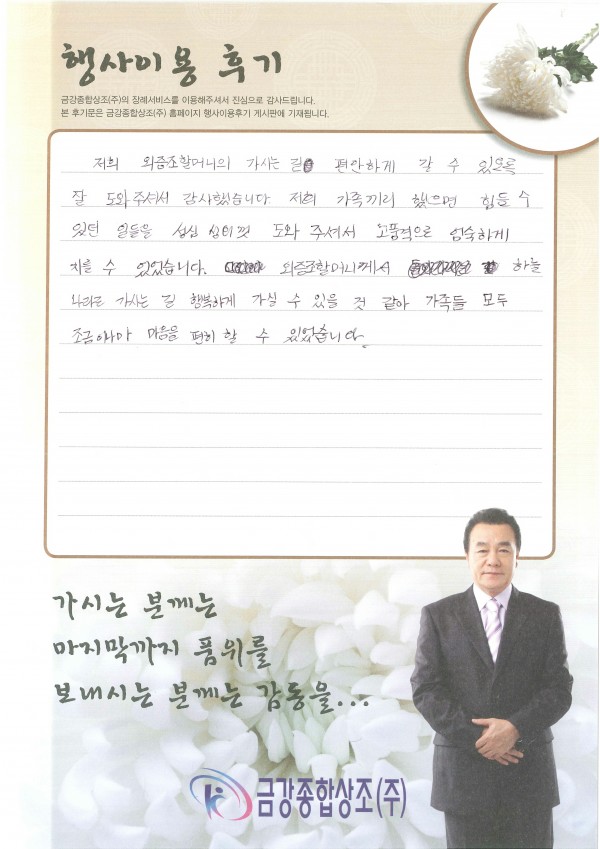 행사이용 후기
금강종합상조(주)의 장례서비스를 이용해주셔서 진심으로 감사드립니다.
본 후기문은 금강종합상조(주) 홈페이지 행사이용후기 게시판에 기재됩니다.
저희 외증조할머니의 가시는 길 편안하게 갈 수 있도록
잘 도와주셔서 감사했습니다. 저희 가족끼리 했으면 힘들 수
있던 일들을 성심 성의껏 도와 주셔서 고품격으로 엄숙하게
치를 수 있었습니다. 외증조할머니께서 하늘
나라로 가시는 길 행복하게 가실 수 있을 것 같아 가족들 모두
조금이나마 마음을 편히 할 수 있었습니다.
가시는 분께는
마지막까지 품위를
보내시는 분께는 감동을...
금강종합상조(주)